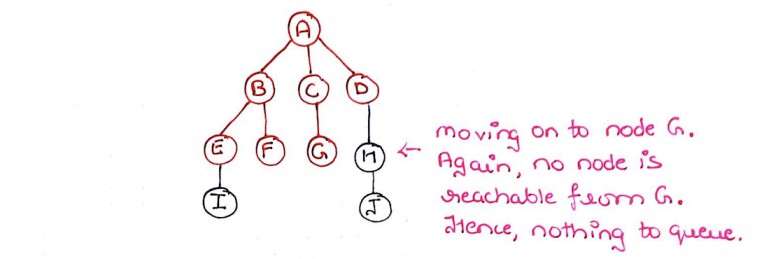 A
B C D
E F G H
I J
← moving on to node G.
Again, no node is
reachable from G.
Hence, nothing to queue.